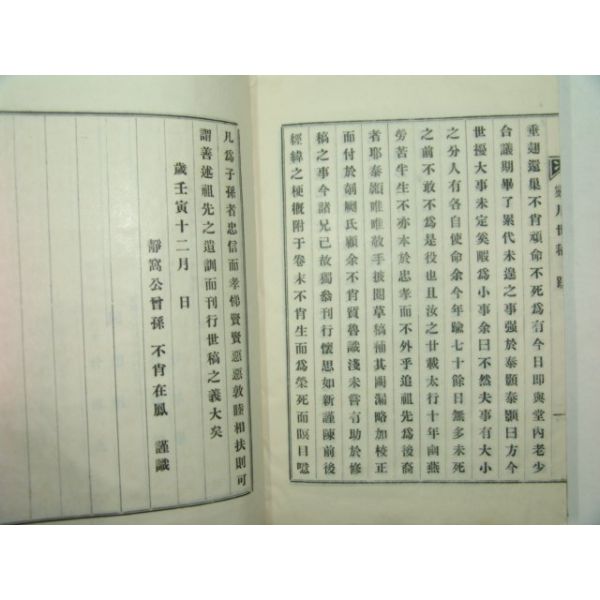 垂翅還巢不肯頑命不死爲有今日卽與堂內老少
合議期畢了累代未遑之事强於泰顯泰顯曰方今
世擾大事未定奚暇爲小事余曰不然夫事有大小
之分人有各自使命余今年踰七十餘日無多未死
之前不敢不爲是役也且汝之廿載太行十年幽燕
勞苦半生不亦本於忠孝而不外乎追祖先爲後裔
者耶泰顯唯唯敬手披閱草稿補其闕漏略加校正
而付於剞劂氏顧余不肯質魯識淺未嘗有助於修
稿之事今諸兄已故獨叅刊行懷思如新謹陳前後
經緯之梗概附于卷末不肯生而爲榮死而瞑目噫
世稿
凡爲子孫者忠信而孝悌賢賢惡惡敦睦相扶則可
謂善述祖先之遺訓而刊行世稿之義大矣
歲壬寅十二月 日
靜窩公曾孫 不肯在鳳 謹識